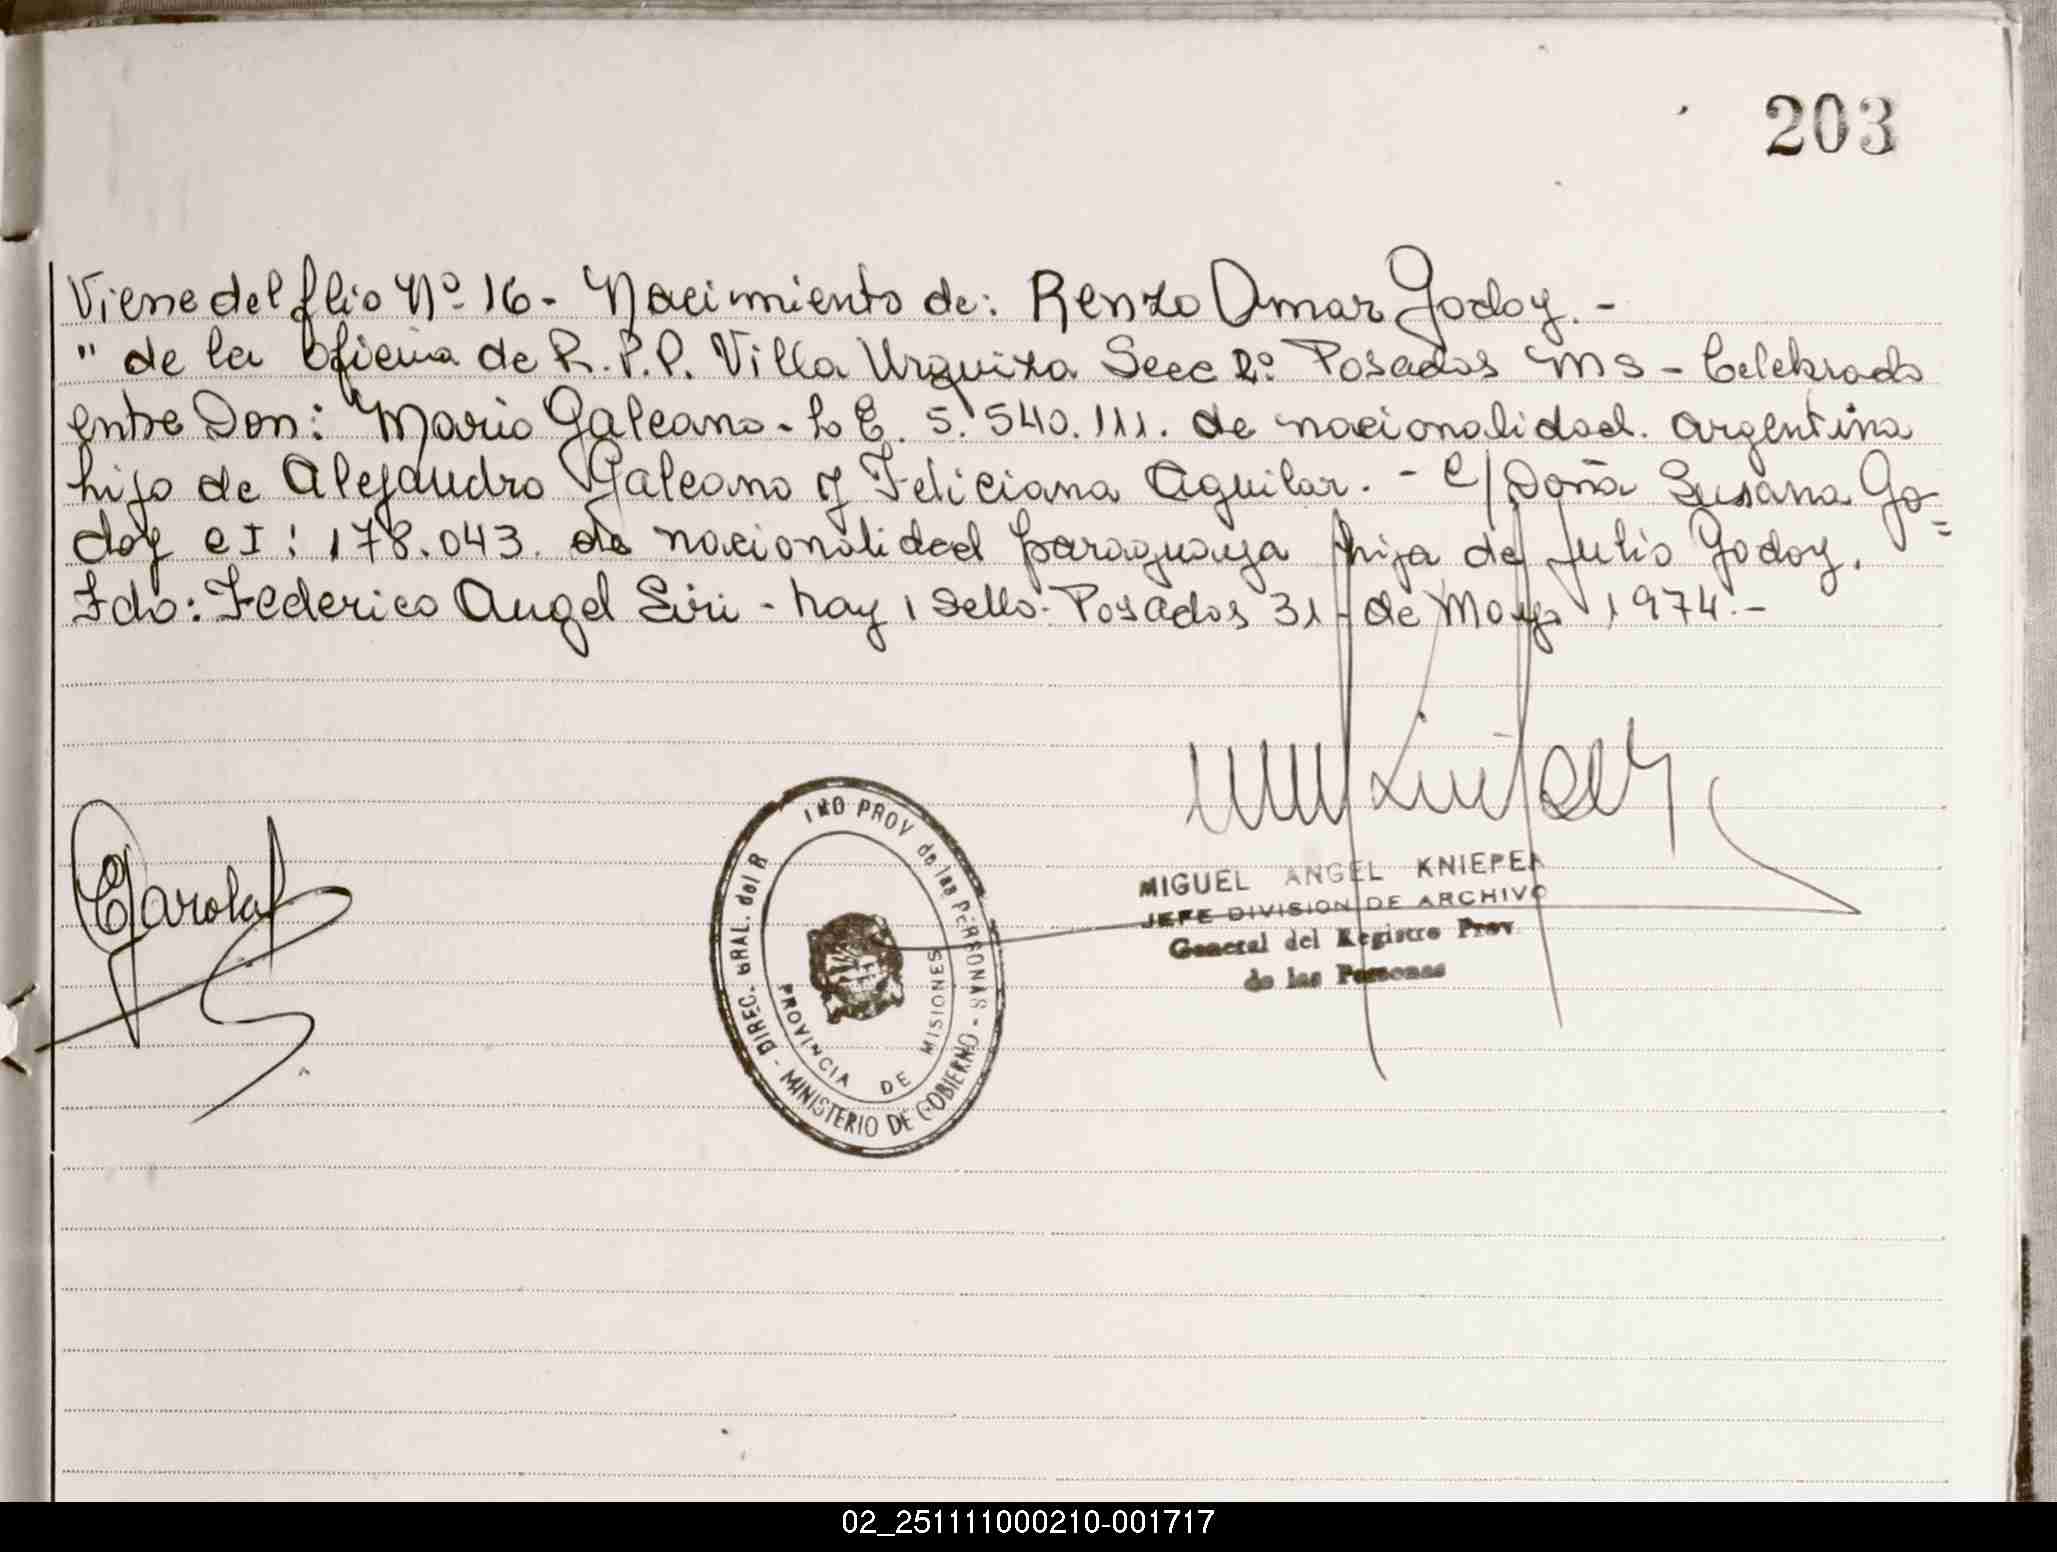 203
Viene del flio Nº 16 - Nacimiento de: Renzo Omar Godoy. -
" de la oficina de R.P.P. Villa Urquiza Secc 2º. Posadas Ms - Celebrado
entre Don: Mario Galeano - L E. 5.540.111. de nacionalidad. argentina
hijo de Alejandro Galeano y Feliciana Aguilar. - C/ Doña Susana Go=
doy CI: 178.043. de nacionalidad paraguaya hija de Julio Godoy.
Fdo: Federico Angel Siri - hay 1 sello. Posadas 31 - de Mayo 1974.-
DIREC. GRAL. del R PROV de las PERSONAS - MINISTERIO DE GOBIERNO -
PROVINCIA DE MISIONES
MIGUEL ANGEL KNIEPER
JEFE DIVISION DE ARCHIVO
General del Registro Prov.
de las Personas
02_251111000210-001717